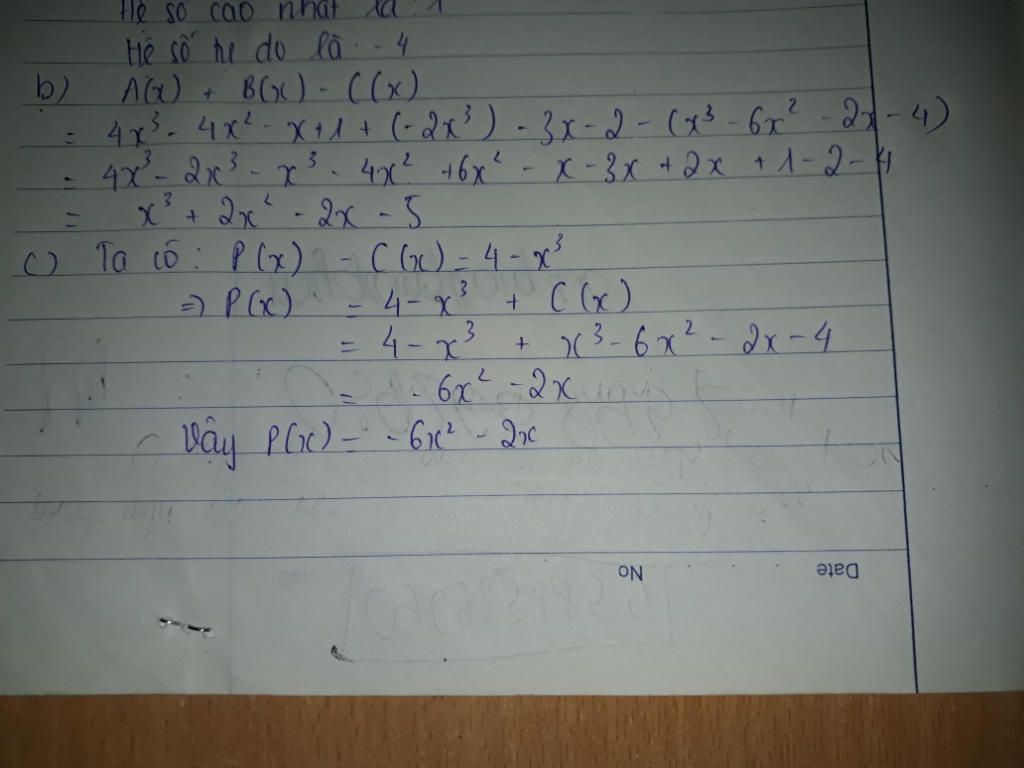 Hệ số cao nhất là 1
Hệ số tự do là: -4
b) A(x) + B(x) - C(x)
= 4x³ - 4x² - x + 1 + (-2x³) - 3x - 2 - (x³ - 6x² - 2x - 4)
= 4x³ - 2x³ - x³ - 4x² + 6x² - x - 3x + 2x + 1 - 2 - 4
= x³ + 2x² - 2x - 5
c) Ta có: P(x) - C(x) = 4 - x³
⇒ P(x) = 4 - x³ + C(x)
= 4 - x³ + x³ - 6x² - 2x - 4
= - 6x² - 2x
Vậy P(x) = - 6x² - 2x
Date No